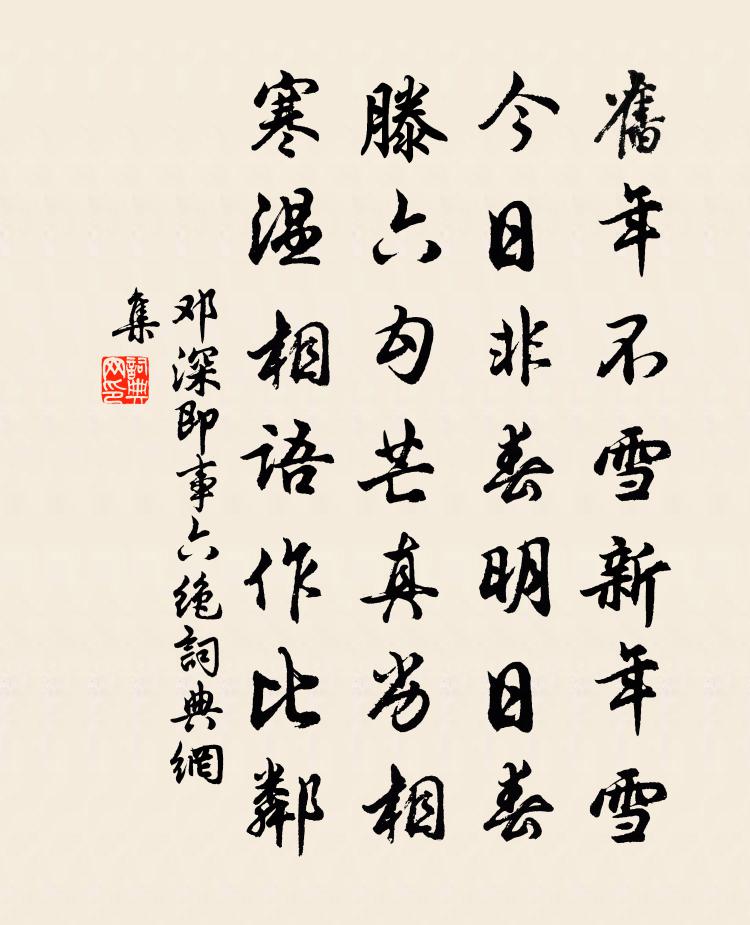 舊年不雪新年雪
今日非春明日春
滕六勾芒真劣相
寒温相語作比鄰
邓深即事六绝詞典網
集
詞典网印